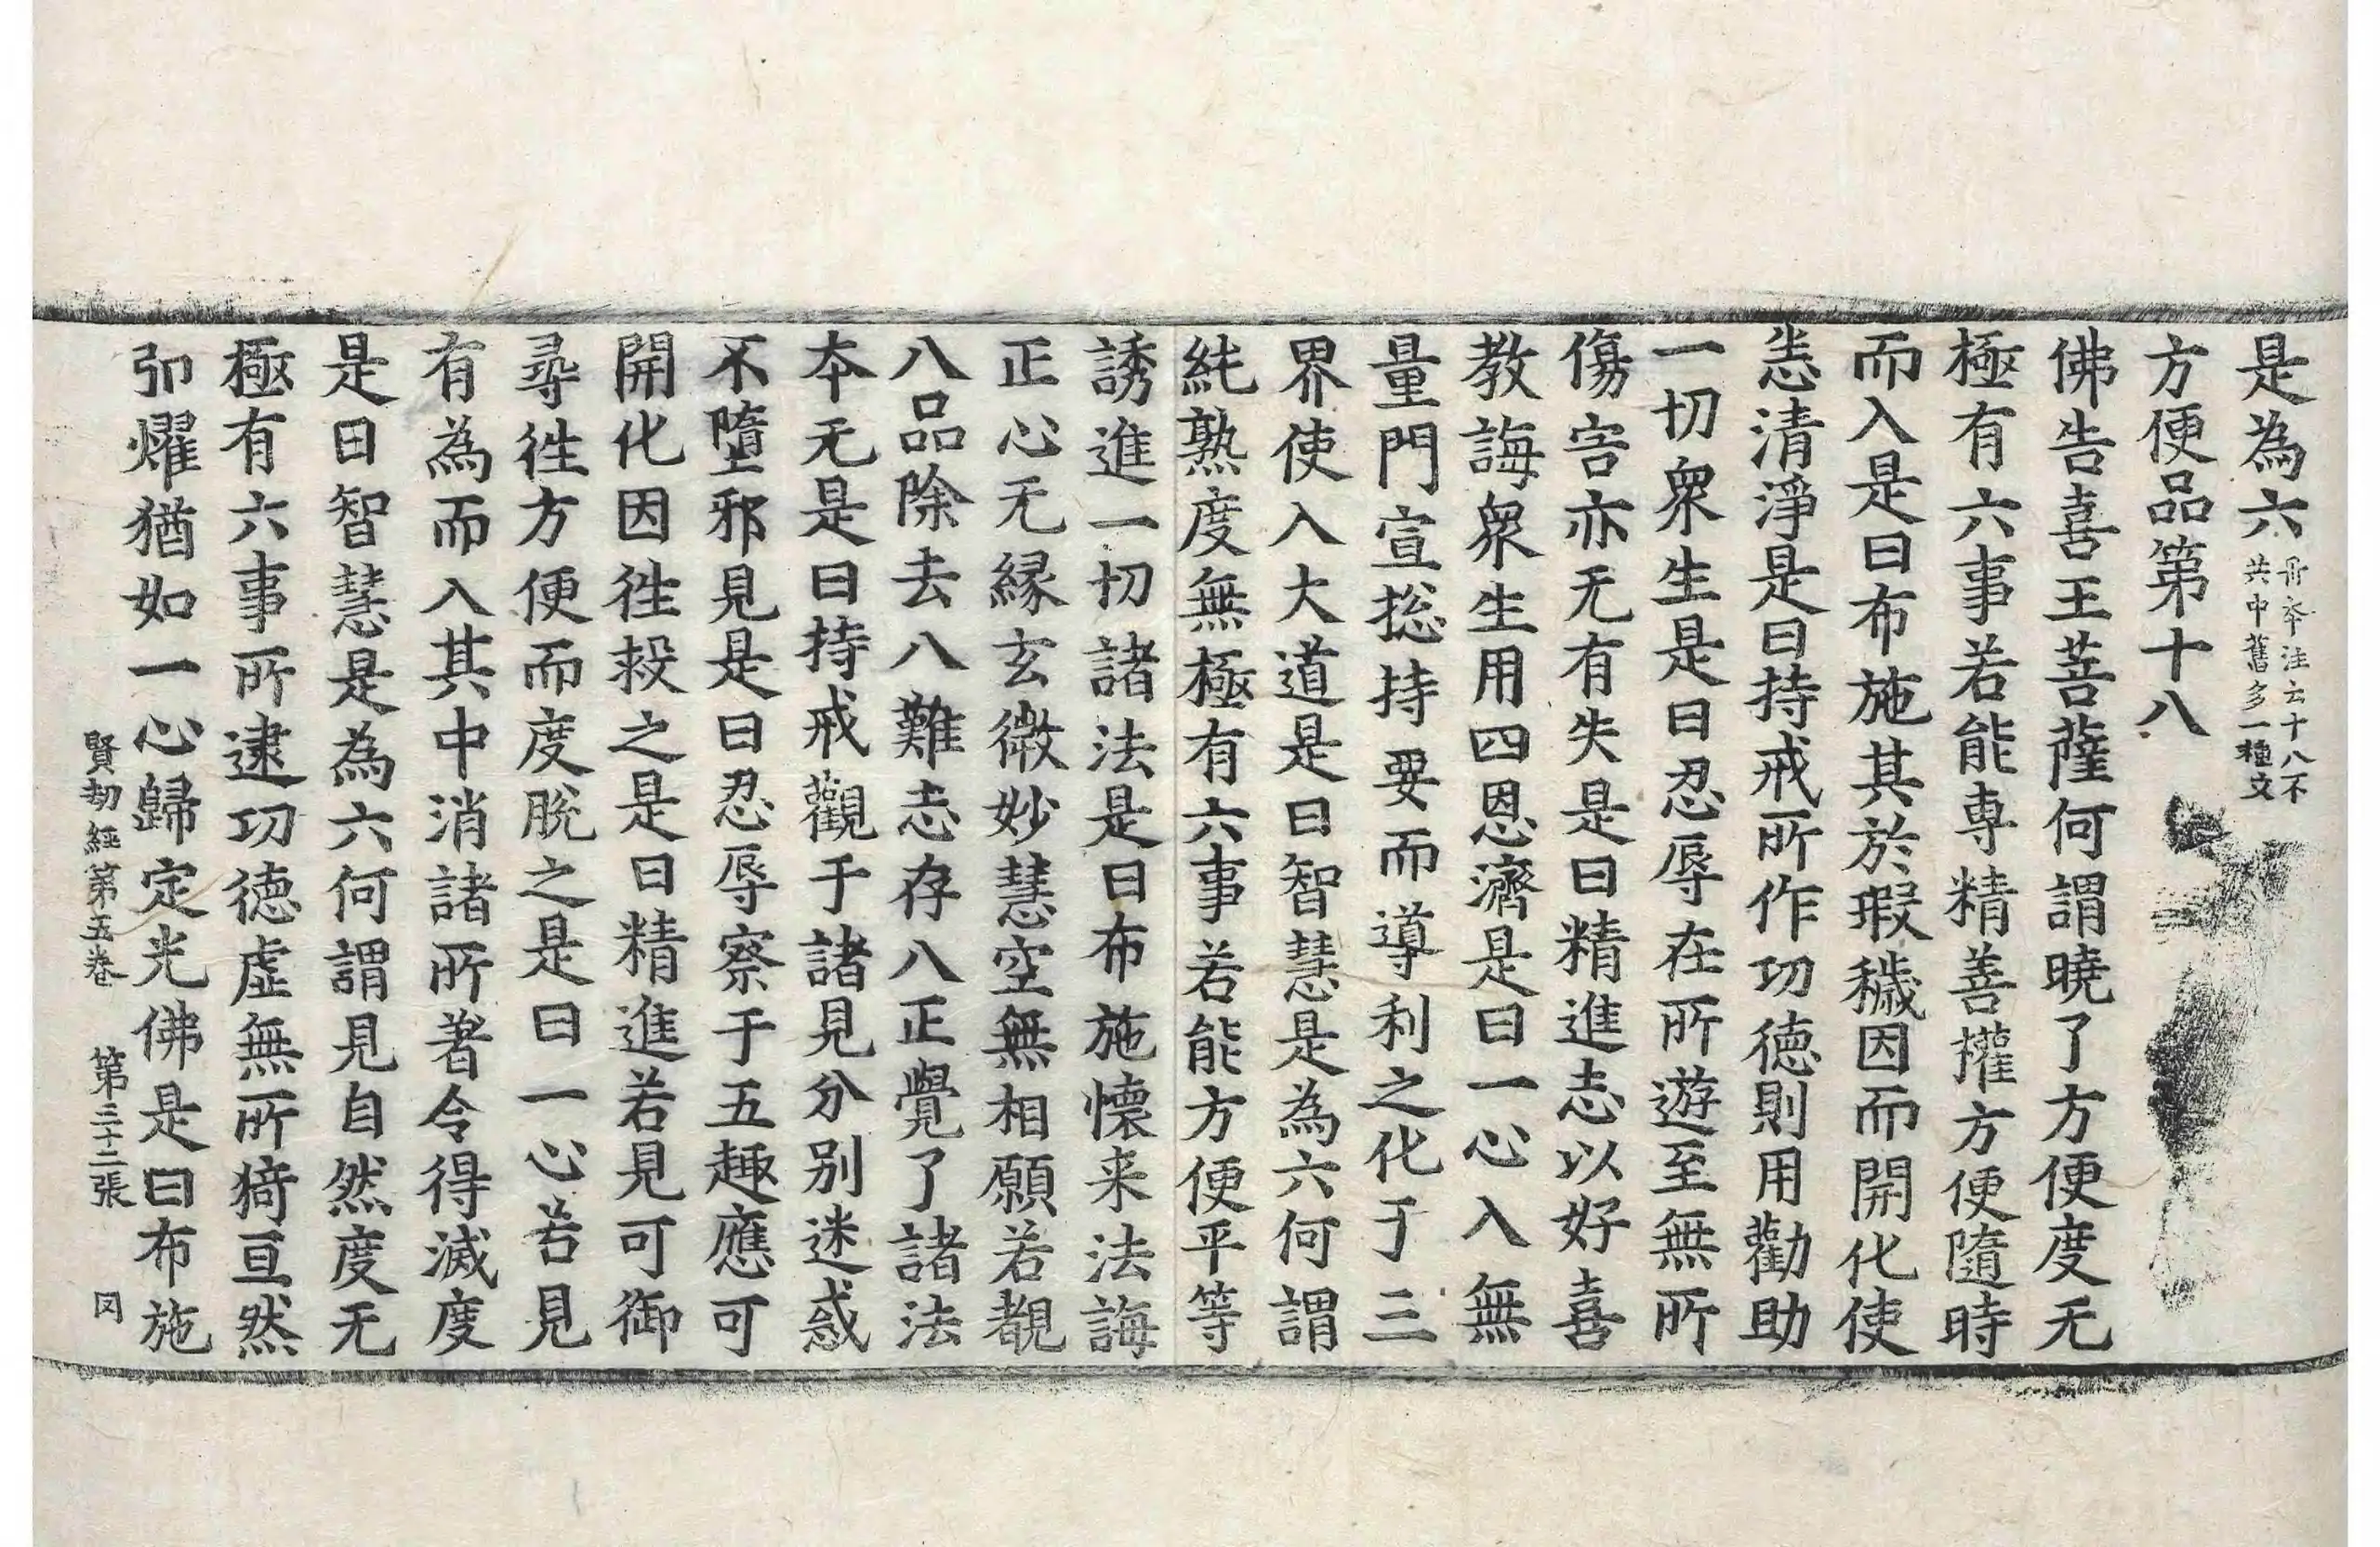 是為六丹夲注云十八不共中舊多一種文
方便品第十八
佛告喜王菩薩何謂曉了方便度无
極有六事若能專精善權方便隨時
而入是曰布施其於瑕穢因而開化使
恙清淨是曰持戒所作功德則用勸助
一切衆生是曰忍辱在所遊至無所
傷害亦无有失是曰精進志以好喜
教誨衆生用四恩濟是曰一心入無
量門宣捴持要而導利之化于三
界使入大道是曰智慧是為六何謂
純熟度無極有六事若能方便平等
誘進一切諸法是曰布施懷来法誨
正心无緣玄微妙慧空無相願若覩
八品除去八難志存八正覺了諸法
夲无是曰持戒觀于諸見分別迷惑
不墮邪見是曰忍辱察于五趣應可
開化因徃救之是曰精進若見可御
尋徃方便而度脫之是曰一心若見
有為而入其中消諸所著令得滅度
是曰智慧是為六何謂見自然度无
極有六事所逮功德虛無所猗亘然
卬燿猶如一心歸定光佛是曰布施
賢劫經第五卷　第三十二張　㓁